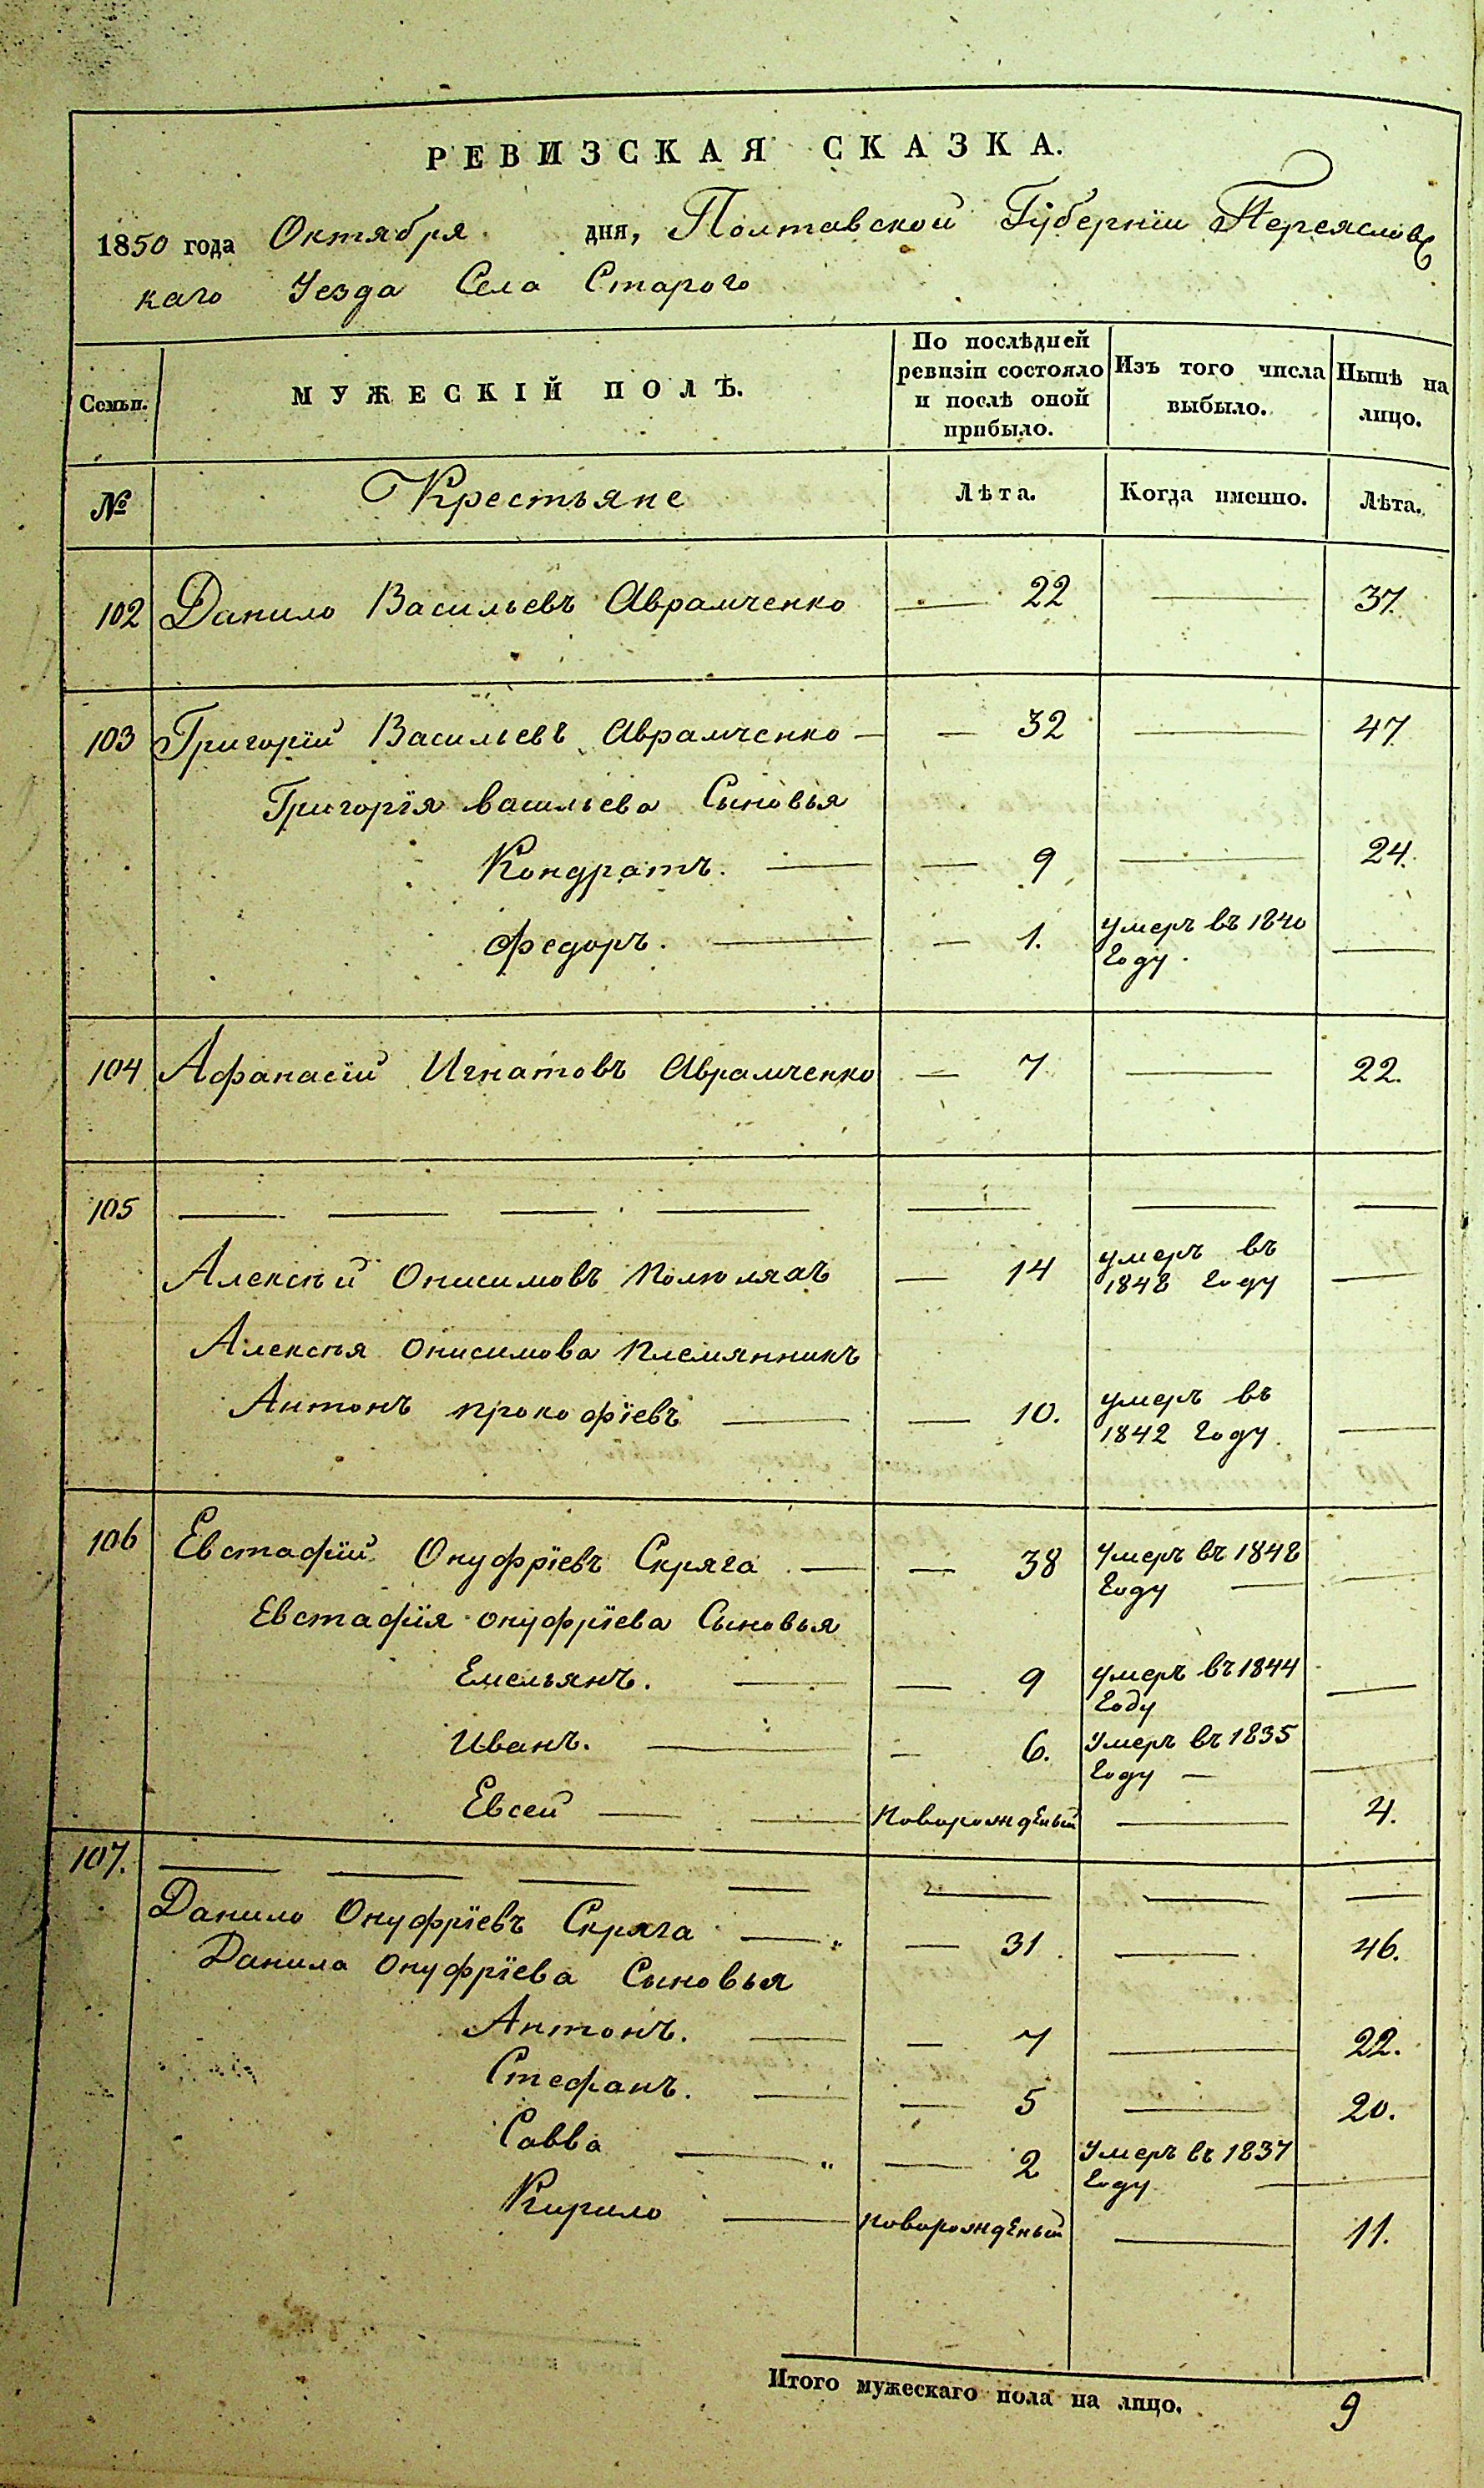 РЕВИЗСКАЯ СКАЗКА.
1850 года Октября дня, Полтавской Губерніи Переясловс
каго Уезда Села Старого
Семьи.
МУЖЕСКІЙ ПОЛЪ.
По послѣдней
ревизіи состояло
и послѣ оной
прибыло.
Изъ того числа
выбыло.
Нынѣ на
лицо.
№ Крестьяне Лѣта. Когда именно. Лѣта.
102 Данило Васильевъ Аврамченко — 22 — 37.
103 Григорій Васильевъ Аврамченко — — 32 — 47.
Григорія васильева Сыновья
Кондратъ. — — 9 — 24.
Федоръ. — — 1. умеръ въ 1840
году. —
104 Афанасій Игнатовъ Аврамченко — 7 — 22.
105 — — — — — — —
Алексѣй Онисимовъ — 14 умеръ въ
1848 году —
Алексѣя Онисимова племянникъ
Антонъ прокофіевъ — — 10. умеръ въ
1842 году. —
106 Евстафій Онуфріевъ Скряга — — 38 Умеръ въ 1848
году — —
Евстафія онуфріева Сыновья
Емельянъ. — — 9 умеръ въ 1844
году —
Иванъ. — — 6. Умеръ въ 1835
году — —
Евсей — — новорожденый — 4.
107. — — — — — — —
Данило Онуфріевъ Скряга — „ — 31. — 46.
Данила Онуфріева Сыновья
Антонъ. — — 7 — 22.
Стефанъ. — — 5 — 20.
Савва — „ — 2 Умеръ въ 1837
году —
Кирило — новорожденый — 11.
Итого мужескаго пола на лицо. 9